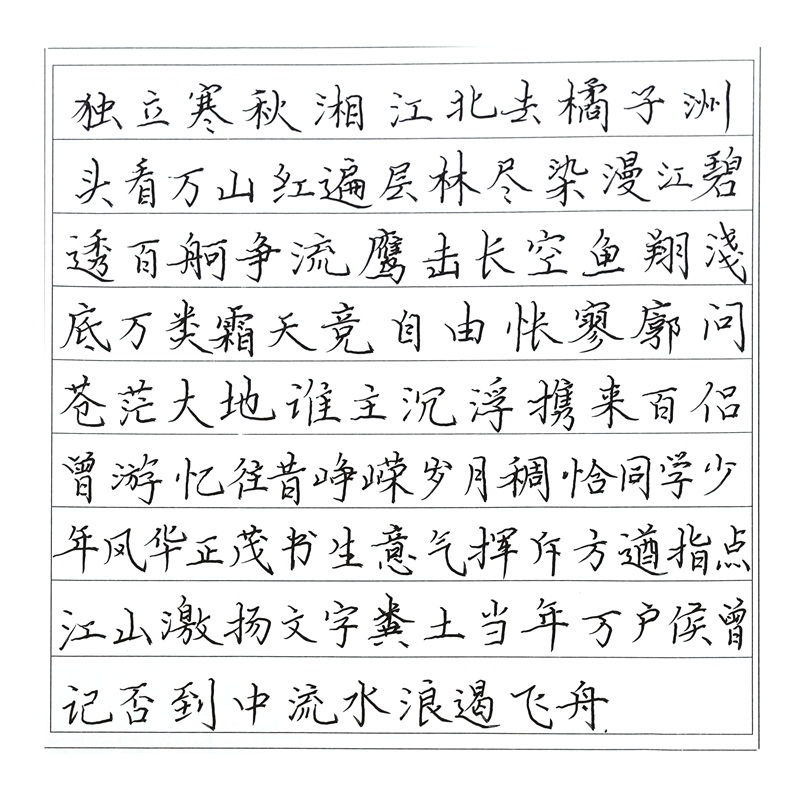 独立寒秋湘江北去橘子洲
头看万山红遍层林尽染漫江碧
透百舸争流鹰击长空鱼翔淺
底万类霜天竞自由怅寥廓问
苍茫大地谁主沉浮携来百侣
曾游忆往昔峥嵘岁月稠恰同学少
年风华正茂书生意气挥斥方遒指点
江山激扬文字粪土当年万户侯曾
记否到中流水浪遏飞舟